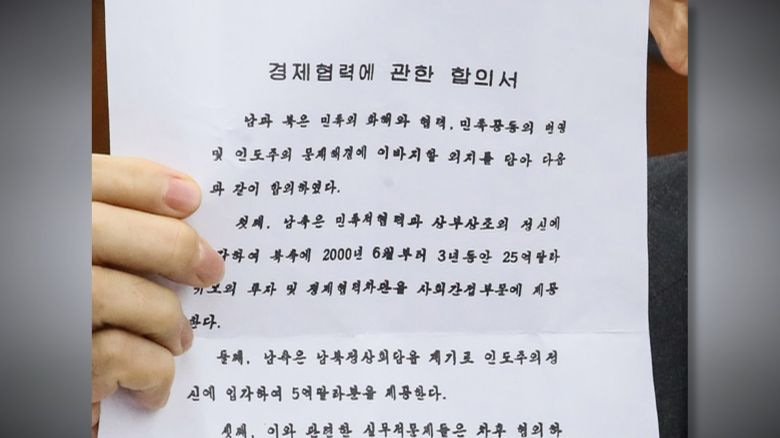 경제협력에 관한 합의서
남과 북은 민족의 화해와 협력, 민족공동의 번영
및 인도주의 문제해결에 이바지할 의지를 담아 다음
과 같이 합의하였다.
첫째, 남측은 민족적협력과 상부상조의 정신에
각하여 북측에 2000년 6월부터 3년동안 25억딸라
규모의 투자 및 경제협력차관을 사회간접부문에 제공
한다.
둘째, 남측은 남북정상회담을 계기로 인도주의정
신에 입각하여 5억딸라분을 제공한다.
셋째, 이와 관련한 실무적문제들은 차후 협의하